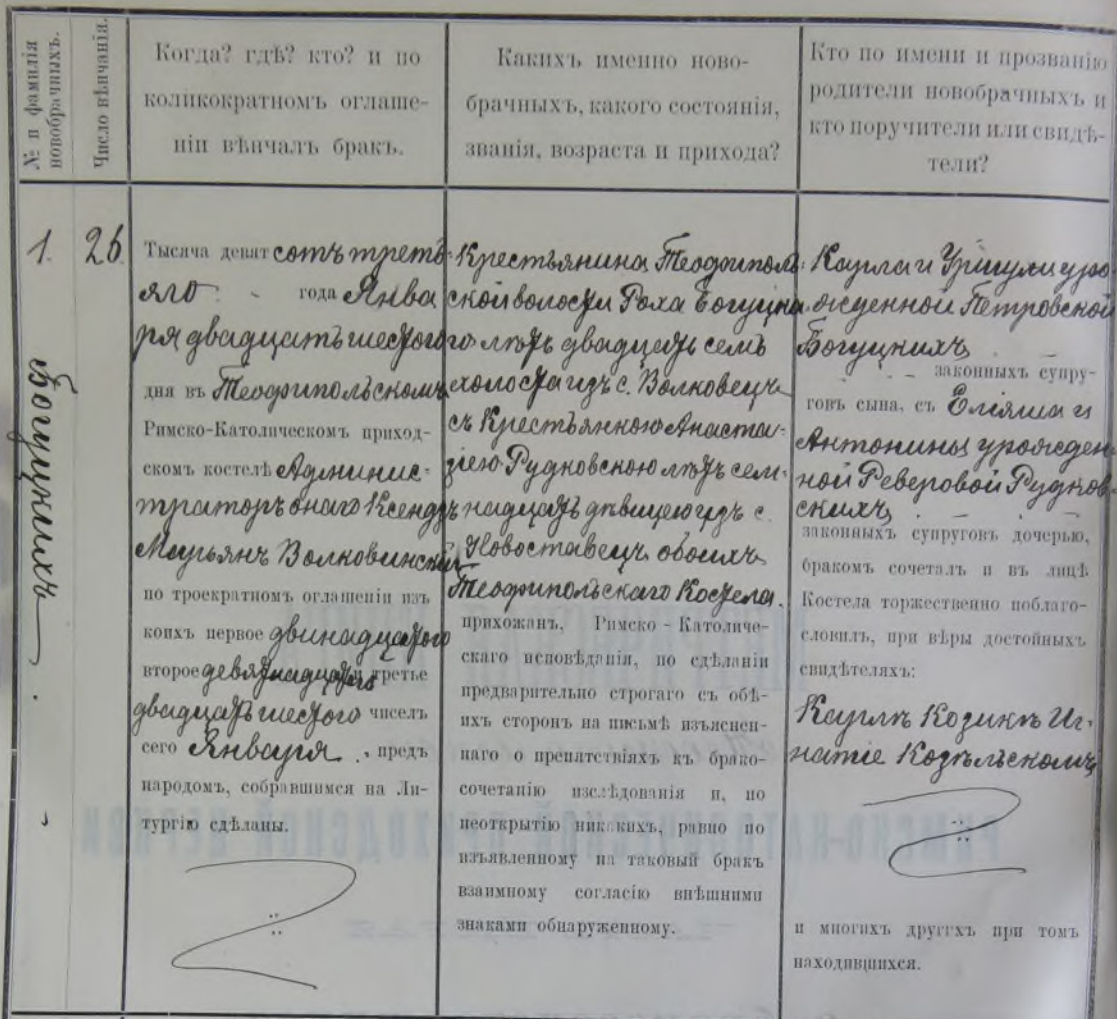 № и фамилія
новобрачныхъ.
Число вѣнчанія.
Когда? гдѣ? кто? и по
коликократномъ оглаше-
ніи вѣнчалъ бракъ.
Какихъ именно ново-
брачныхъ, какого состоянія,
званія, возраста и прихода?
Кто по имени и прозванію
родители новобрачныхъ и
кто поручители или свидѣ-
тели?
1.
Богуцкихъ
26
Тысяча девятсотъ треть-
яго года Янва
ря двадцать шестого
дня въ Теофипольскомъ
Римско-Католическомъ приход-
скомъ костелѣ Админис-
траторъ онаго Ксендзъ
Марьянъ Волковинскій
по троекратномъ оглашеніи изъ
коихъ первое двинадцатого
второе девятнадцатого третье
двадцать шестого чиселъ
сего Января, предъ
народомъ, собравшимся на Ли-
тургію сдѣланы.
Крестьянина Теофиполь-
ской волости Роха Богуцка-
го лѣтъ двадцать семъ
холоста изъ с. Волковецъ
съ Крестьянкою Анаста-
зіею Рудковскою лѣтъ сем-
надцать дѣвицею изъ с.
Новоставецъ обоихъ
Теофипольскаго Костела.
прихожанъ, Римско-Католиче-
скаго исповѣданія, по сдѣланіи
предварительно строгаго съ обѣ-
ихъ сторонъ на письмѣ изъяснен-
наго о препятствіяхъ къ брако-
сочетанію изслѣдованія и, по
неоткрытію никакихъ, равно по
изъявленному на таковый бракъ
взаимному согласію внѣшними
знаками обнаруженному.
Карла и Уршули уро-
жденной Петровской
Богуцкихъ
законныхъ супру-
говъ сына, съ Еліяша и
Антонины урожден-
ной Реверовой Рудков-
скихъ
законныхъ супруговъ дочерью,
бракомъ сочеталъ и въ лицѣ
Костела торжественно поблаго-
словилъ, при вѣры достойныхъ
свидѣтеляхъ:
Карлъ Козикъ Иг-
натіе Козѣльскомъ
и многихъ другхъ при томъ
находившихся.